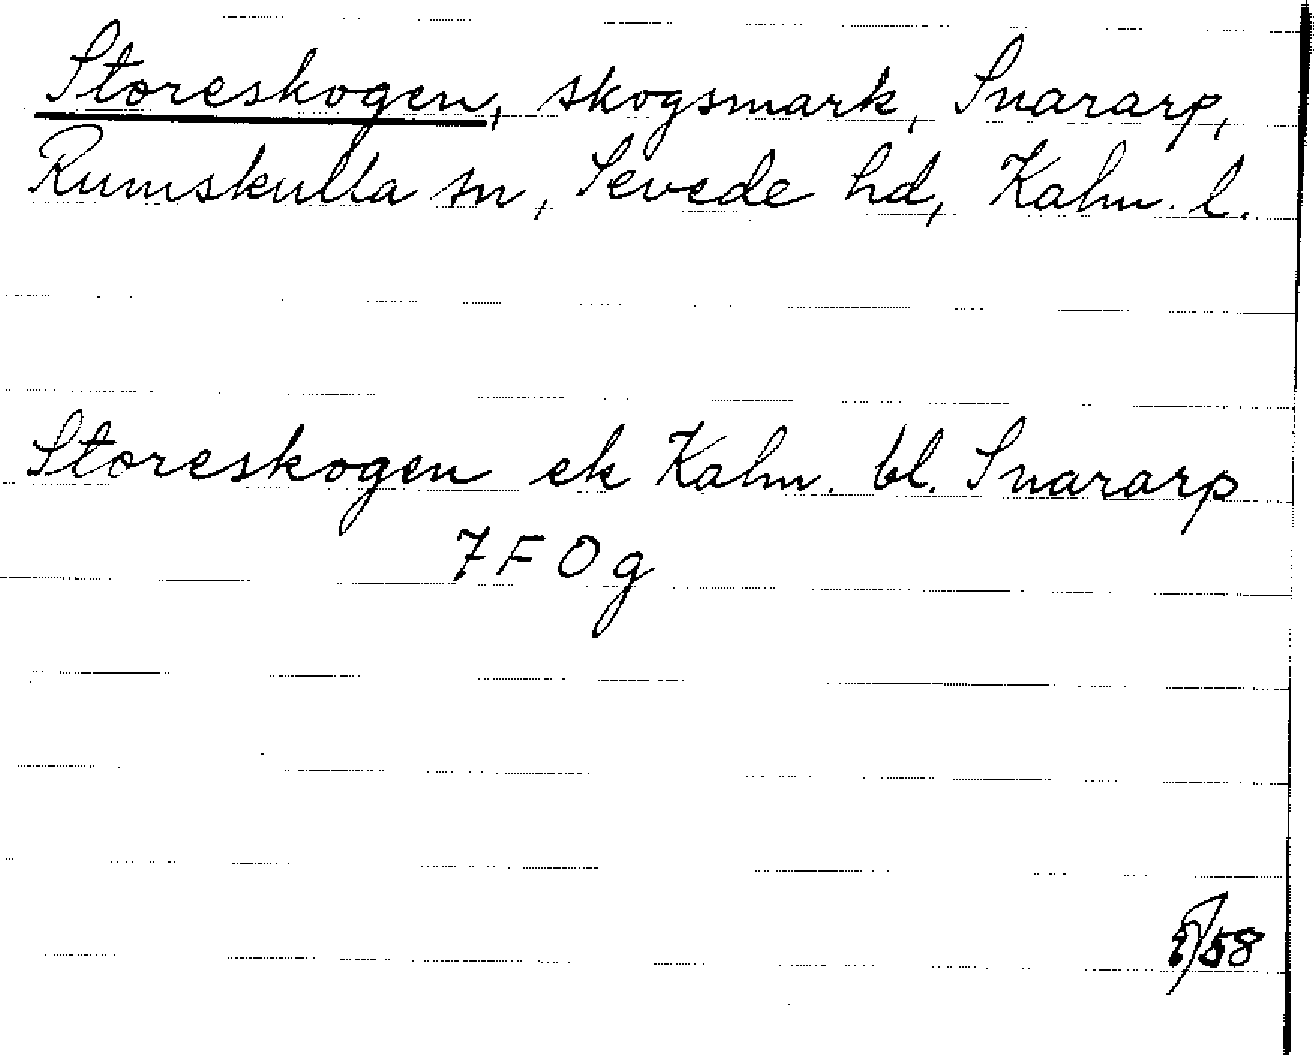 Storeskogen, skogsmark, Snararp,
Rumskulla sn, Sevede hd, Kalm. l.
Storeskogen ek Kalm. bl. Snararp
7 F O g